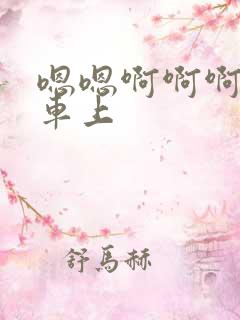 嗯嗯啊啊啊
車上
舒馬赫